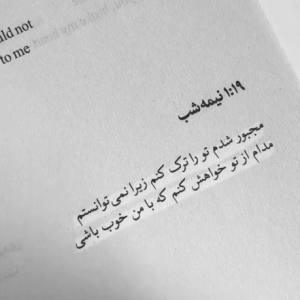 uld not
to me
۱:۱۹ نیمه‌شب
مجبور شدم تو را ترک کنم زیرا نمی‌توانستم
مدام از تو خواهش کنم که با من خوب باشی